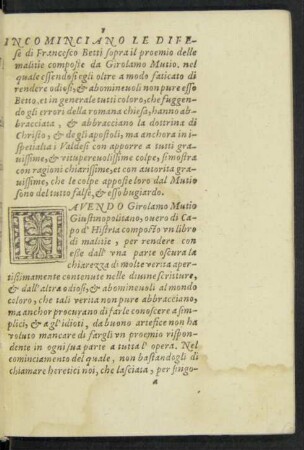 INCOMINCIANO LE DIFE-
se di Francesco Betti sopra il proemio delle
malitie composte da Girolamo Mutio. nel
quale essendosi egli oltre a modo faticato di
rendere odiosi, & abomineuoli non pure esso
Betto, et in generale tutti coloro, che fuggen-
do gli errori della romana chiesa, hanno ab-
bracciata, & abbracciano la dottrina di
Christo, & de gli apostoli, ma anchora in i-
spetialità i Valdesi con apporre a tutti gra-
uissime, & vitupereuolissime colpe, si mostra
con ragioni chiarissime, et con autorita gra-
uissime, che le colpe apposte loro dal Mutio
sono del tutto false, & esso bugiardo.
HAVENDO Girolamo Mutio
Giustinopolitano, ouero di Ca-
pod' Histria composto vn libro
di malitie, per rendere con
esse dall' vna parte oscura la
chiarezza di molte verita aper-
tissimamente contenute nelle diuine scritture,
& dall' altra odiosi, & abomineuoli al mondo
coloro, che tali verita non pure abbracciano,
ma anchor procurano di farle conoscere a sim-
plici, & a gl' idioti, da buono artefice non ha
voluto mancare di fargli vn proemio rispon-
dente in ogni sua parte a tutta l' opera. Nel
cominciamento del quale, non bastandogli di
chiamare heretici noi, che lasciata, per singo-
a